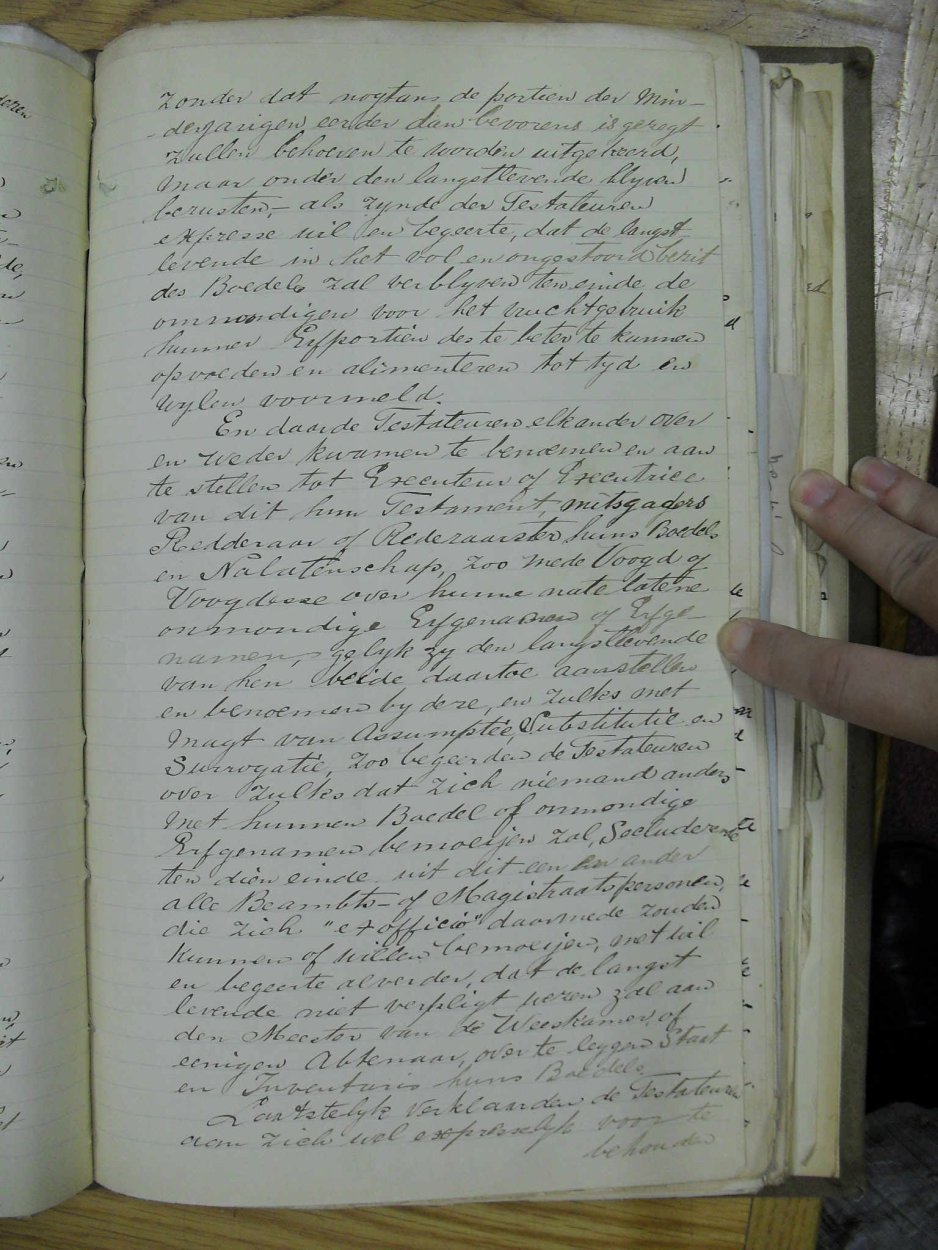 zonder dat nogtans de portien der Min-
-derjarigen eerder dan bevorens is gezegt
zullen behoeven te worden uitgekeerd,
maar onder den langstlevende blyven
berusten, - als zynde der Testateuren
expresse wil en begeerte, dat de langst
levende in het vol en ongestoord bezit
des Boedels zal verblyven ten einde de
onmondigen voor het vruchtgebruik
hunner Erfportien des te beter te kunnen
opvoeden en alimenteren tot tyd en
wylen voormeld.
En daar de Testateuren elkander over
en weder kwamen te benoemen en aan
te stellen tot Executeur of Executrice
van dit hun Testament, mitsgaders
Redderaar of Rederaarster huns Boedels
en Nalatenschap, zoo mede Voogd of
Voogdesse over hunne nate latene
onmondige Erfgenamen of Erfge-
namen, gelyk zy den langstlevende
van hen beide daartoe aanstellen
en benoemen by deze, en zulks met
Magt van Assumptie, Substitutie en
Surrogatie, zoo begeerden de Testateuren
over zulks dat zich niemand anders
met hunnen Boedel of onmondige
Erfgenamen bemoeijen zal, Secluderende
ten dien einde uit dit een en ander
alle Beambts- of Magistraatspersonen,
die zich "ex officio" daarmede zouden
kunnen of willen bemoeijen, met wil
en begeerte al verder, dat de langst
levende niet verpligt wezen zal aan
den Meester van de Weeskamer, of
eenigen Abtenaar, over te leggen Staat
en Inventaris huns Boedels.
Laatstelyk verklaarden de Testateuren
aan zich wel expresselyk voor te
behouden